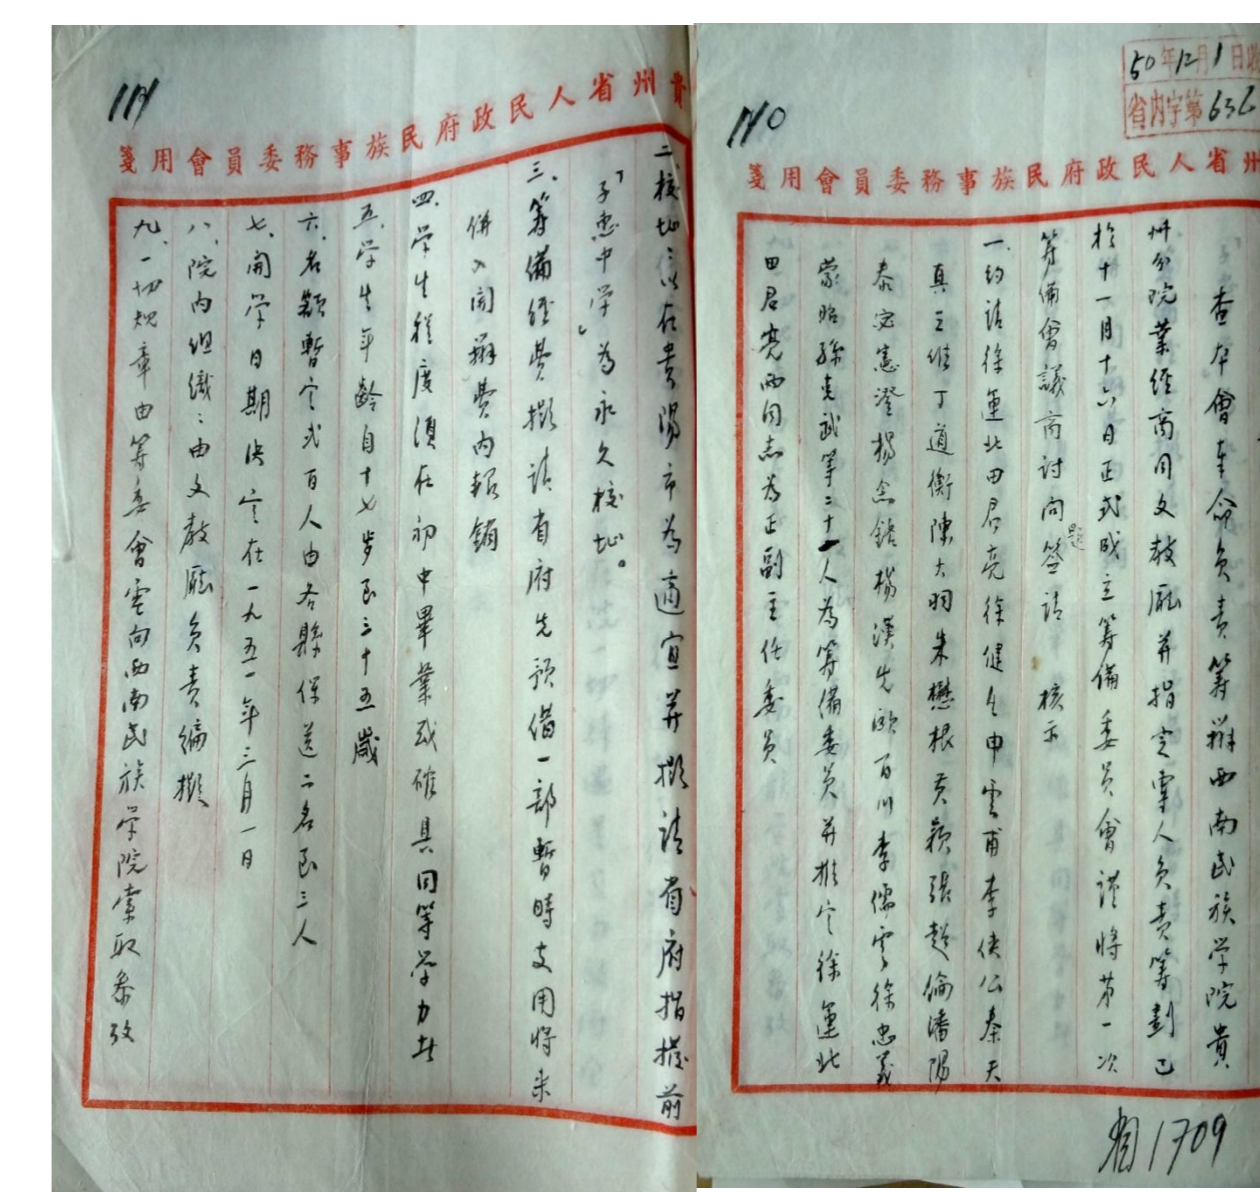 50年12月1日收
省內字第636
110
州省人民政府民族事務委員會用箋
查本會奉命负责筹辦西南民族学院貴
州分院業經商同文教厛并指定專人负责筹劃已
於十一月十六日正式成立筹備委员會謹將第一次
筹備會議商讨问题签请 核示
一.约请徐運北田君亮徐健生申雲甫李侠公秦天
真王维丁道衡陳大羽朱懋根黄颖張超倫潘陽
泰安憲澄楊念錯楊漢先欧百川李儒雲徐忠義
蒙昭孫克武等二十一人為筹備委员并推定徐運北
田君亮两同志為正副主任委员
省1709
111
貴州省人民政府民族事務委員會用箋
二.校址議在貴陽市為適宜并擬請省府指撥前
「子惠中学」為永久校址。
三.筹備經费擬請省府先预借一部暫時支用將来
併入開辦费内报銷
四.学生程度須在初中畢業或確具同等学力者
五.学生年齡自十七岁至三十五歲
六.名额暫定式百人由各縣保送二名至三人
七.開学日期决定在一九五一年三月一日
八.院内组織:由文教厛负责编擬
九.一切规章由筹委會電向西南民族学院索取参攷